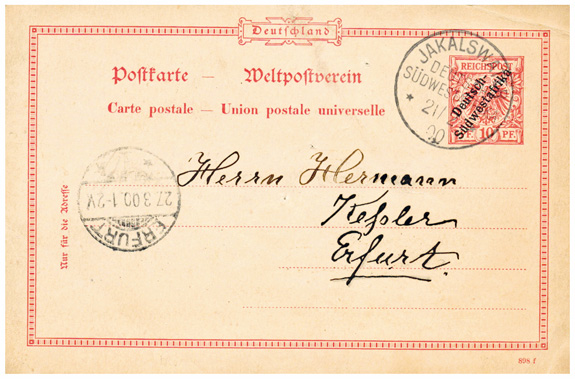 Deutschland
Postkarte — Weltpostverein
Carte postale — Union postale universelle
JAKALSW
SÜDWEST
* 21/
00
REICHSPOST
Deutsch-
Südwestafrika
10 PF.
Herrn Hermann
Keßler
Erfurt.
27.3.00.1-2V
ERFURT
Nur für die Adresse
898. f